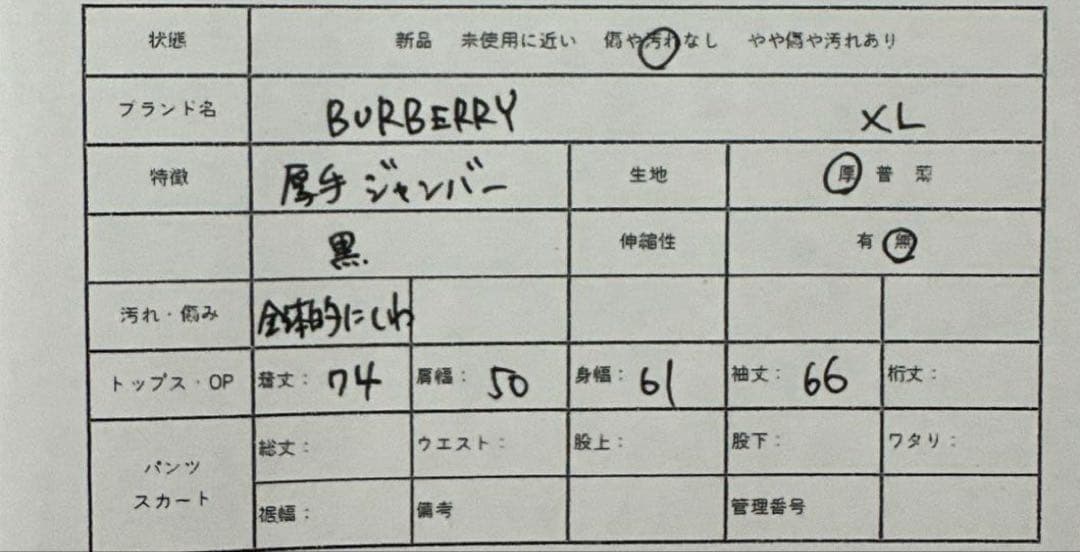 状態 新品 未使用に近い 傷や汚れなし やや傷や汚れあり
ブランド名 BURBERRY XL
特徴 厚手 ジャンバー 生地 厚 普 薄
黒 伸縮性 有 無
汚れ・傷み 全体的にしわ
トップス・OP 着丈: 74 肩幅: 50 身幅: 61 袖丈: 66 裄丈:
パンツ
スカート
総丈: ウエスト: 股上: 股下: ワタリ:
裾幅: 備考 管理番号